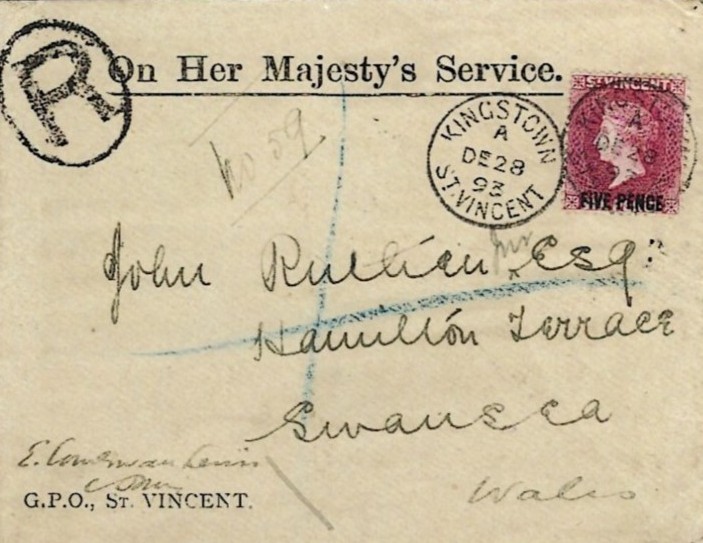 R
On Her Majesty's Service.
ST. VINCENT
FIVE PENCE
KINGSTOWN
A
DE 28
93
ST. VINCENT
KINGST
A
DE 28
93
No 59
John Jnr Esq.
Hamilton Terrace
Swansea
Wales
E.
G.P.O., ST. VINCENT.